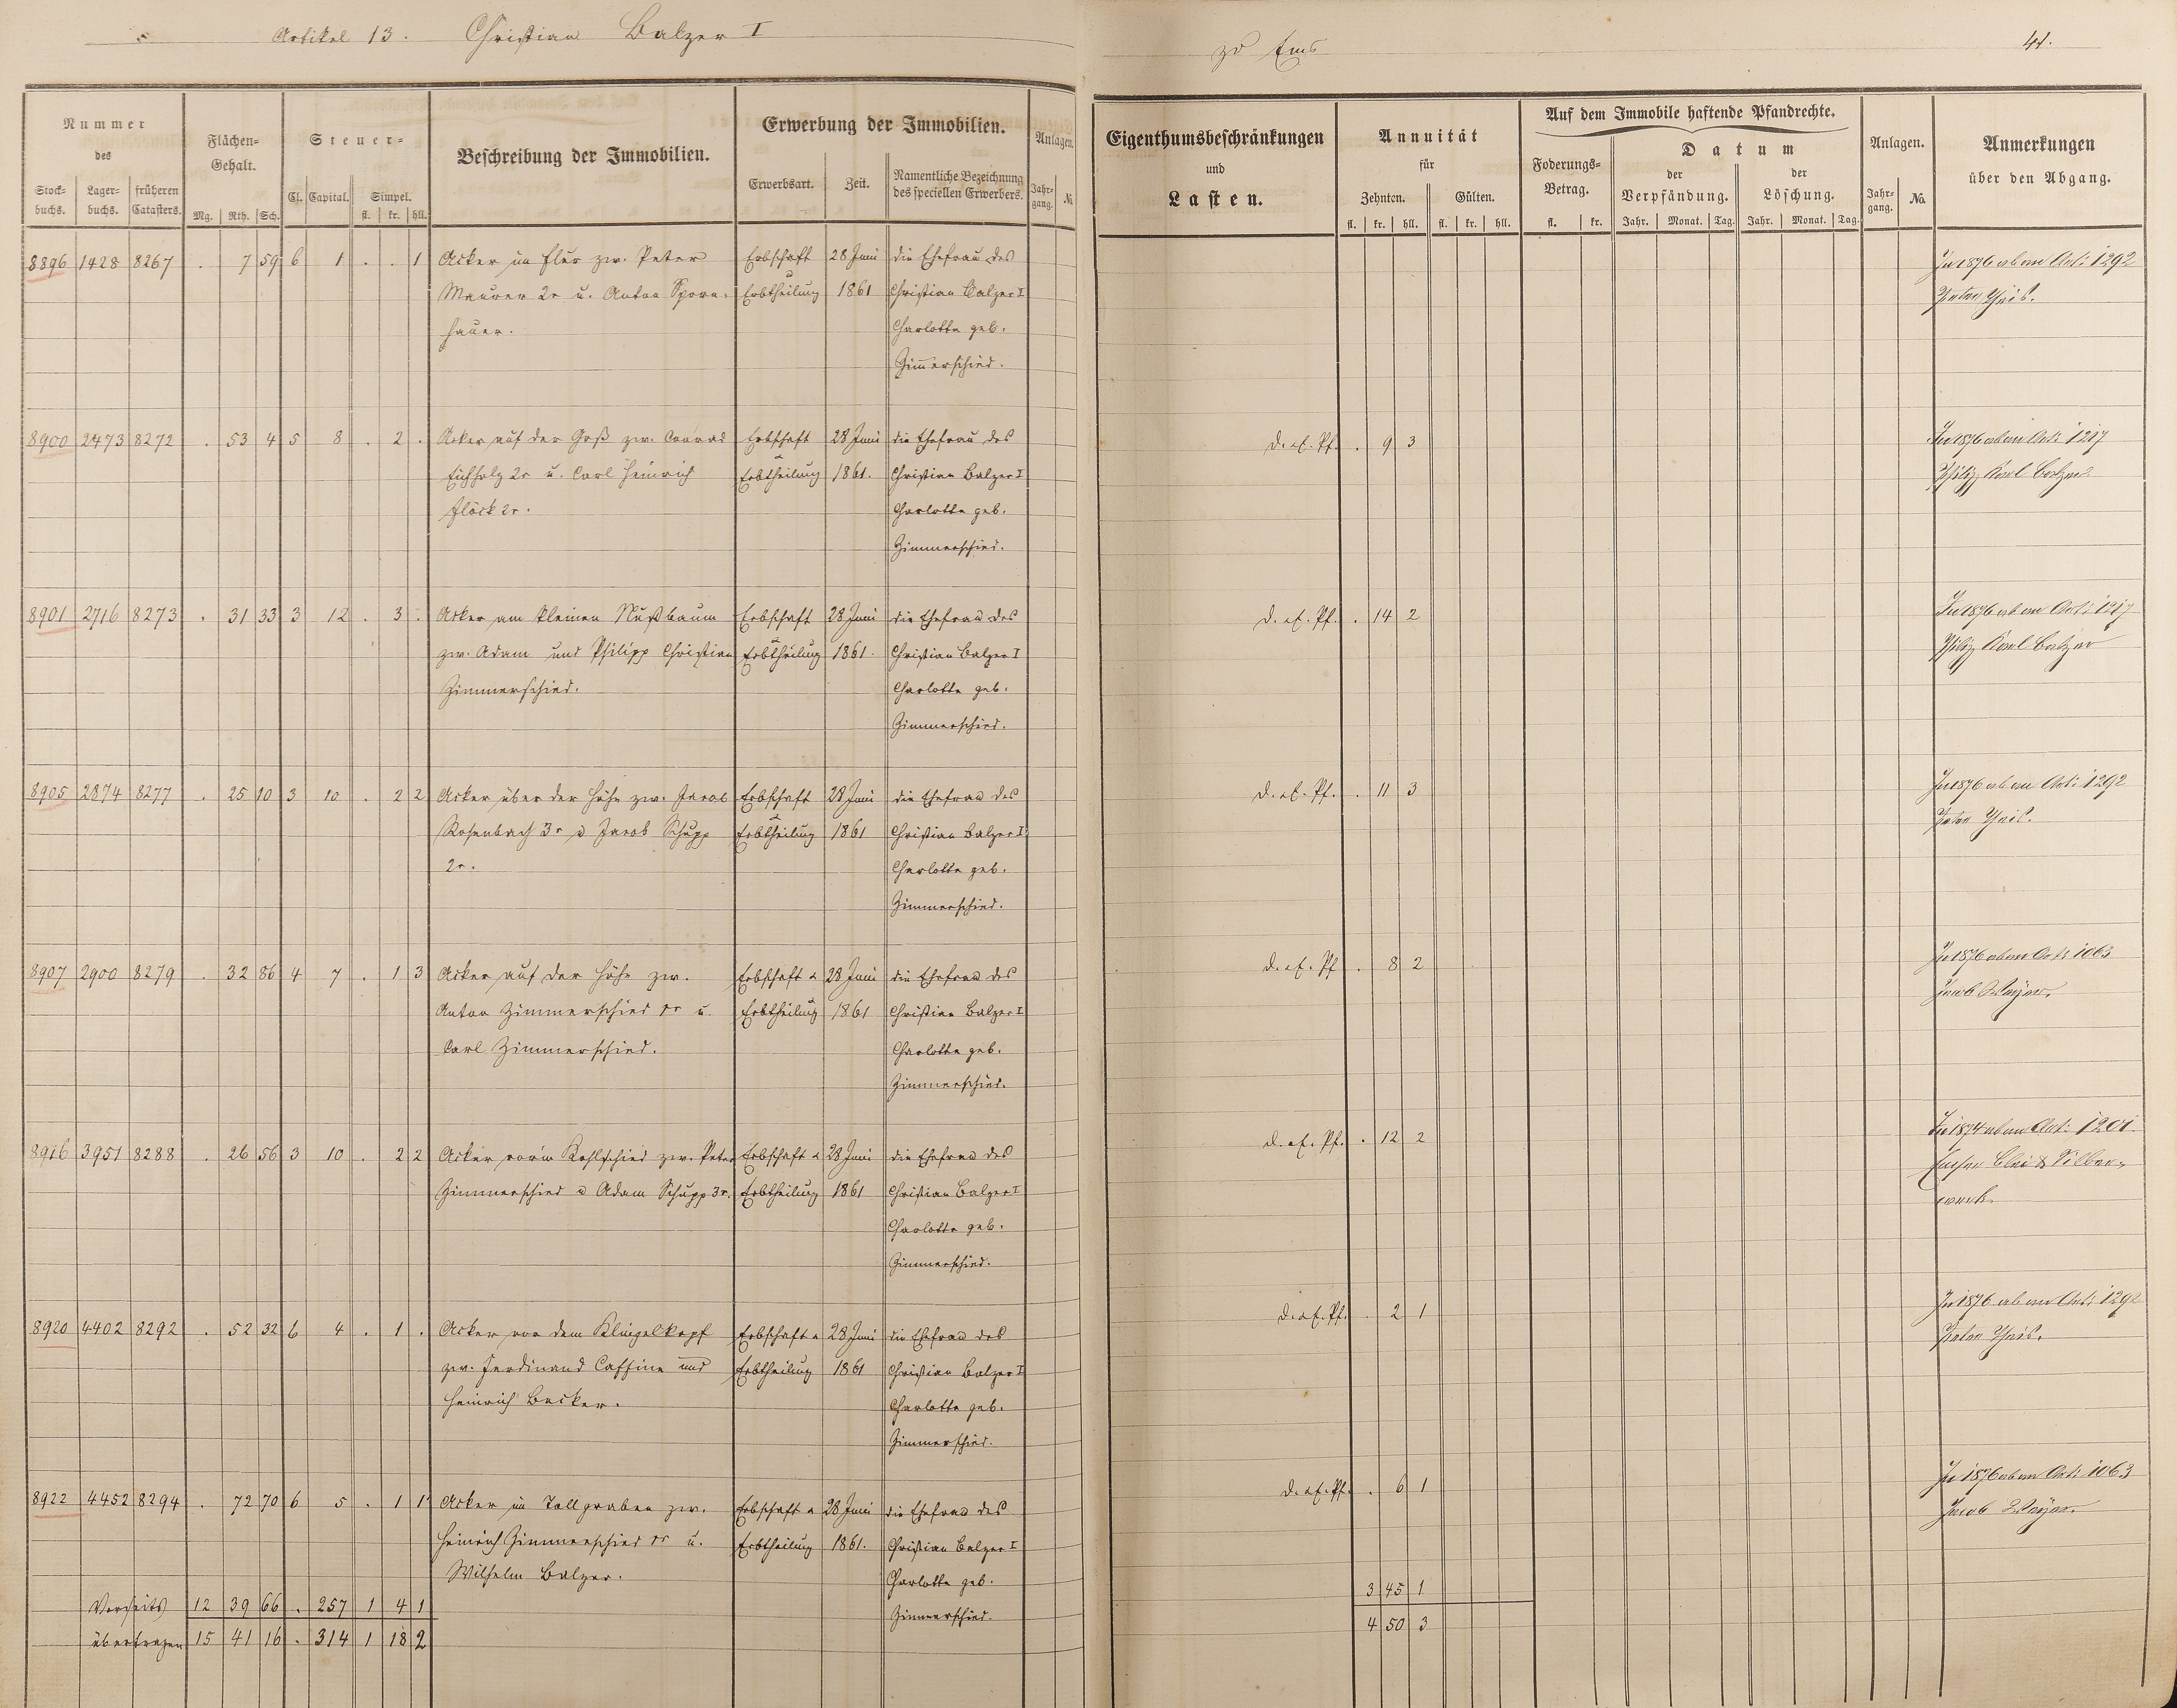 Artikel 13. Christian Balzer I
zu Ems
41.
Nummer
des
Stock-
buchs.
Lager-
buchs.
früheren
Catasters.
Flächen-
Gehalt.
Mg. Rth. Sch.
Steuer-
Cl. Capital. Simpel.
fl. kr. hll.
Beschreibung der Immobilien.
Erwerbung der Immobilien.
Erwerbsart. Zeit.
Namentliche Bezeichnung
des speciellen Erwerbers.
Anlagen.
Jahr-
gang. №
Eigenthumsbeschränkungen
und
Lasten.
Annuität
für
Zehnten. Gülten.
fl. kr. hll. fl. kr. hll.
Auf dem Immobile haftende Pfandrechte.
Foderungs-
Betrag.
fl. kr.
Datum
der
Verpfändung.
der
Löschung.
Jahr. Monat. Tag. Jahr. Monat. Tag.
Anlagen.
Jahr-
gang. No.
Anmerkungen
über den Abgang.
8896 1428 8267 . 7 59 6 1 . . 1 Acker im Flur zw. Peter Erbschaft 28 Juni die Ehefrau des In 1876 ab am Art: 1292
Maurer 2r u. Anton Sporn- u Erbtheilung 1861 Christian Balzer I Peter
hauer. Charlotte geb.
Zimmerschied.
8900 2473 8272 . 53 4 5 8 . 2 . Acker auf der Gaß zw. Conrad Erbschaft 28 Juni die Ehefrau des d. a. E. Pf. . 9 3 In 1876 ab am Art: 1217
Eichholz 2r u. Carl Heinrich u Erbtheilung 1861. Christian Balzer I Philipp Karl Balzer
Flöck 2r. Charlotte geb.
Zimmerschied.
8901 2716 8273 . 31 33 3 12 . 3 . Acker am kleinen Nußbaum Erbschaft 28 Juni die Ehefrau des d. a. E. Pf. . 14 2 In 1876 ab am Art: 1217
zw. Adam und Philipp Christian u Erbtheilung 1861. Christian Balzer I Philipp Karl Balzer
Zimmerschied. Charlotte geb.
Zimmerschied.
8905 2874 8277 . 25 10 3 10 . 2 2 Acker über der Höhe zw. Jacob Erbschaft 28 Juni die Ehefrau des d. a. E. Pf. . 11 3 In 1876 ab am Art: 1292
Rosenbach 3r u Jacob Schupp u Erbtheilung 1861 Christian Balzer I Peter
2r. Charlotte geb.
Zimmerschied.
8907 2900 8279 . 32 86 4 7 . 1 3 Acker auf der Höhe zw. Erbschaft u 28 Juni die Ehefrau des d. a. E. Pf . 8 2 In 1876 ab am Art: 1063
Anton Zimmerschied u. Erbtheilung 1861 Christian Balzer I Jacob
Carl Zimmerschied. Charlotte geb.
Zimmerschied.
8916 3951 8288 . 26 56 3 10 . 2 2 Acker vorm Kohlschied zw. Peter Erbschaft u 28 Juni die Ehefrau des d. a. E. Pf. . 12 2 In 1874 ab am Art: 1201.
Zimmerschied u Adam Schupp 3r. Erbtheilung 1861 Christian Balzer I Emser Blei & Silber-
Charlotte geb. werk.
Zimmerschied.
8920 4402 8292 . 52 32 6 4 . 1 . Acker vor dem Klingelkopf Erbschaft u 28 Juni die Ehefrau des d. a. E. Pf. . 2 1 In 1876 ab am Art: 1292
zw. Ferdinand Caffine und Erbtheilung 1861 Christian Balzer I Peter
Heinrich Becker. Charlotte geb.
Zimmerschied.
8922 4452 8294 . 72 70 6 5 . 1 1 Acker im Tollgraben zw. Erbschaft u 28 Juni die Ehefrau des d. a. E. Pf. . 6 1 In 1876 ab am Art: 1063
Heinrich Zimmerschied u. Erbtheilung 1861. Christian Balzer I Jacob
Wilhelm Balzer. Charlotte geb.
Zimmerschied.
Vorseits 12 39 66 . 257 1 4 1 3 45 1
übertragen 15 41 16 . 314 1 18 2 4 50 3